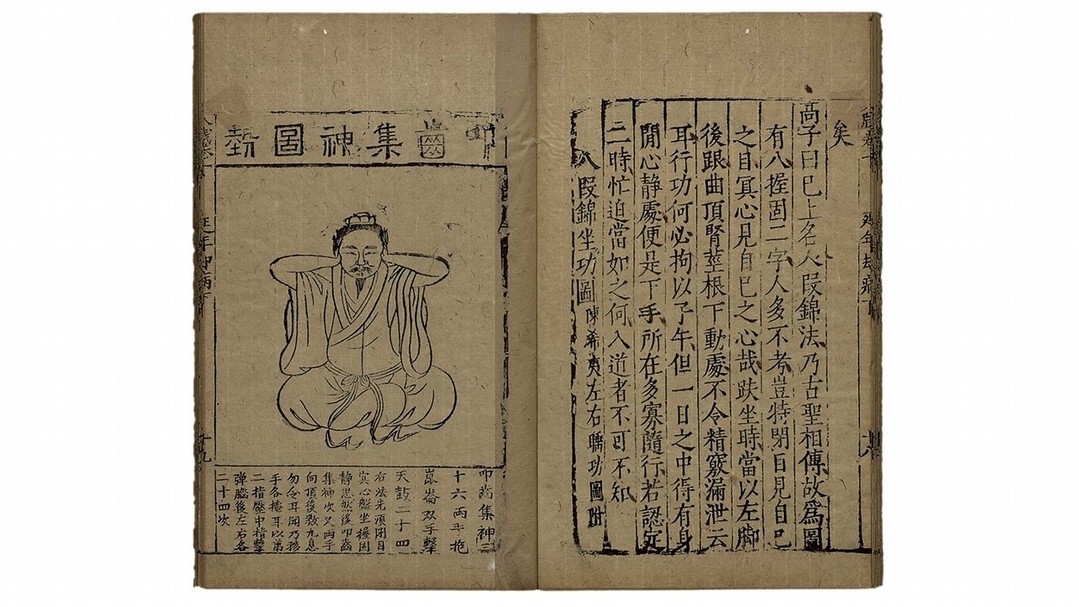 矣
高子曰已上名八段錦法乃古聖相傳故爲圖
有八握固二字人多不考豈特閉目見自己
之目冥心見自己之心哉趺坐時當以左脚
後跟曲頂腎莖根下動處不令精竅漏泄云
耳行功何必拘以子午但一日之中得有身
閒心静處便是下手所在多寡隨行若認定
二時忙迫當如之何入道者不可不知
八段錦坐功圖 陳希夷左右睡功圖附
叩齒集神圖勢
叩齒集神三
十六兩手抱
崑崙双手擊
天鼓二十四
右法先須閉目
冥心盤坐握固
静思然後叩齒
集神次叉兩手
向頂後数九息
勿令耳聞乃移
手各掩耳以第
二指壓中指擊
彈腦後左右各
二十四次